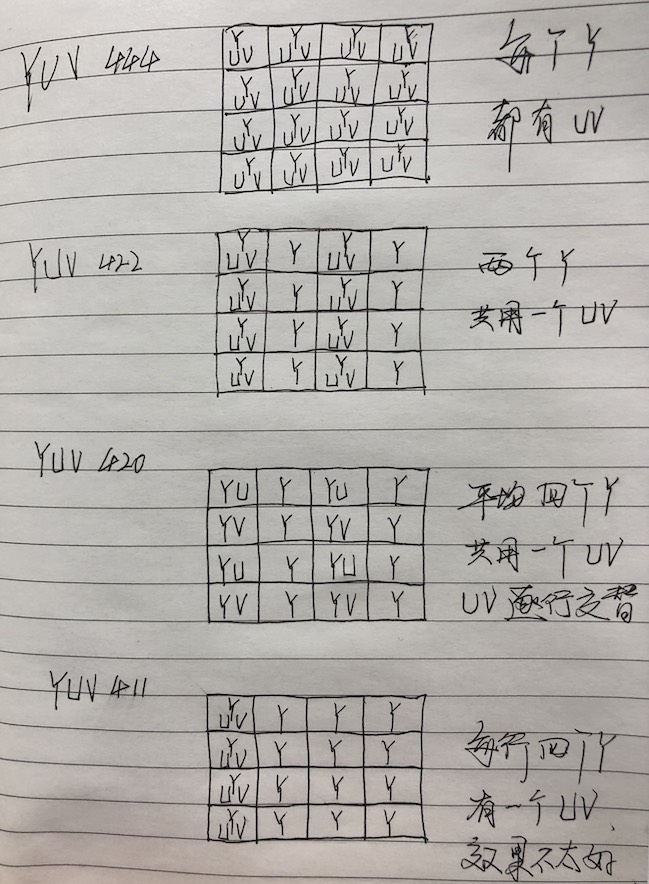 YUV 444
YUV YUV YUV YUV
YUV YUV YUV YUV
YUV YUV YUV YUV
YUV YUV YUV YUV
每个Y
都有UV
YUV 422
YUV Y YUV Y
YUV Y YUV Y
YUV Y YUV Y
YUV Y YUV Y
两个Y
共用一个UV
YUV 420
YU Y YU Y
YV Y YV Y
YU Y YU Y
YV Y YV Y
平均四个Y
共用一个UV
UV逐行交替
YUV 411
YUV Y Y Y
YUV Y Y Y
YUV Y Y Y
YUV Y Y Y
每行四个Y
有一个UV
效果不太好